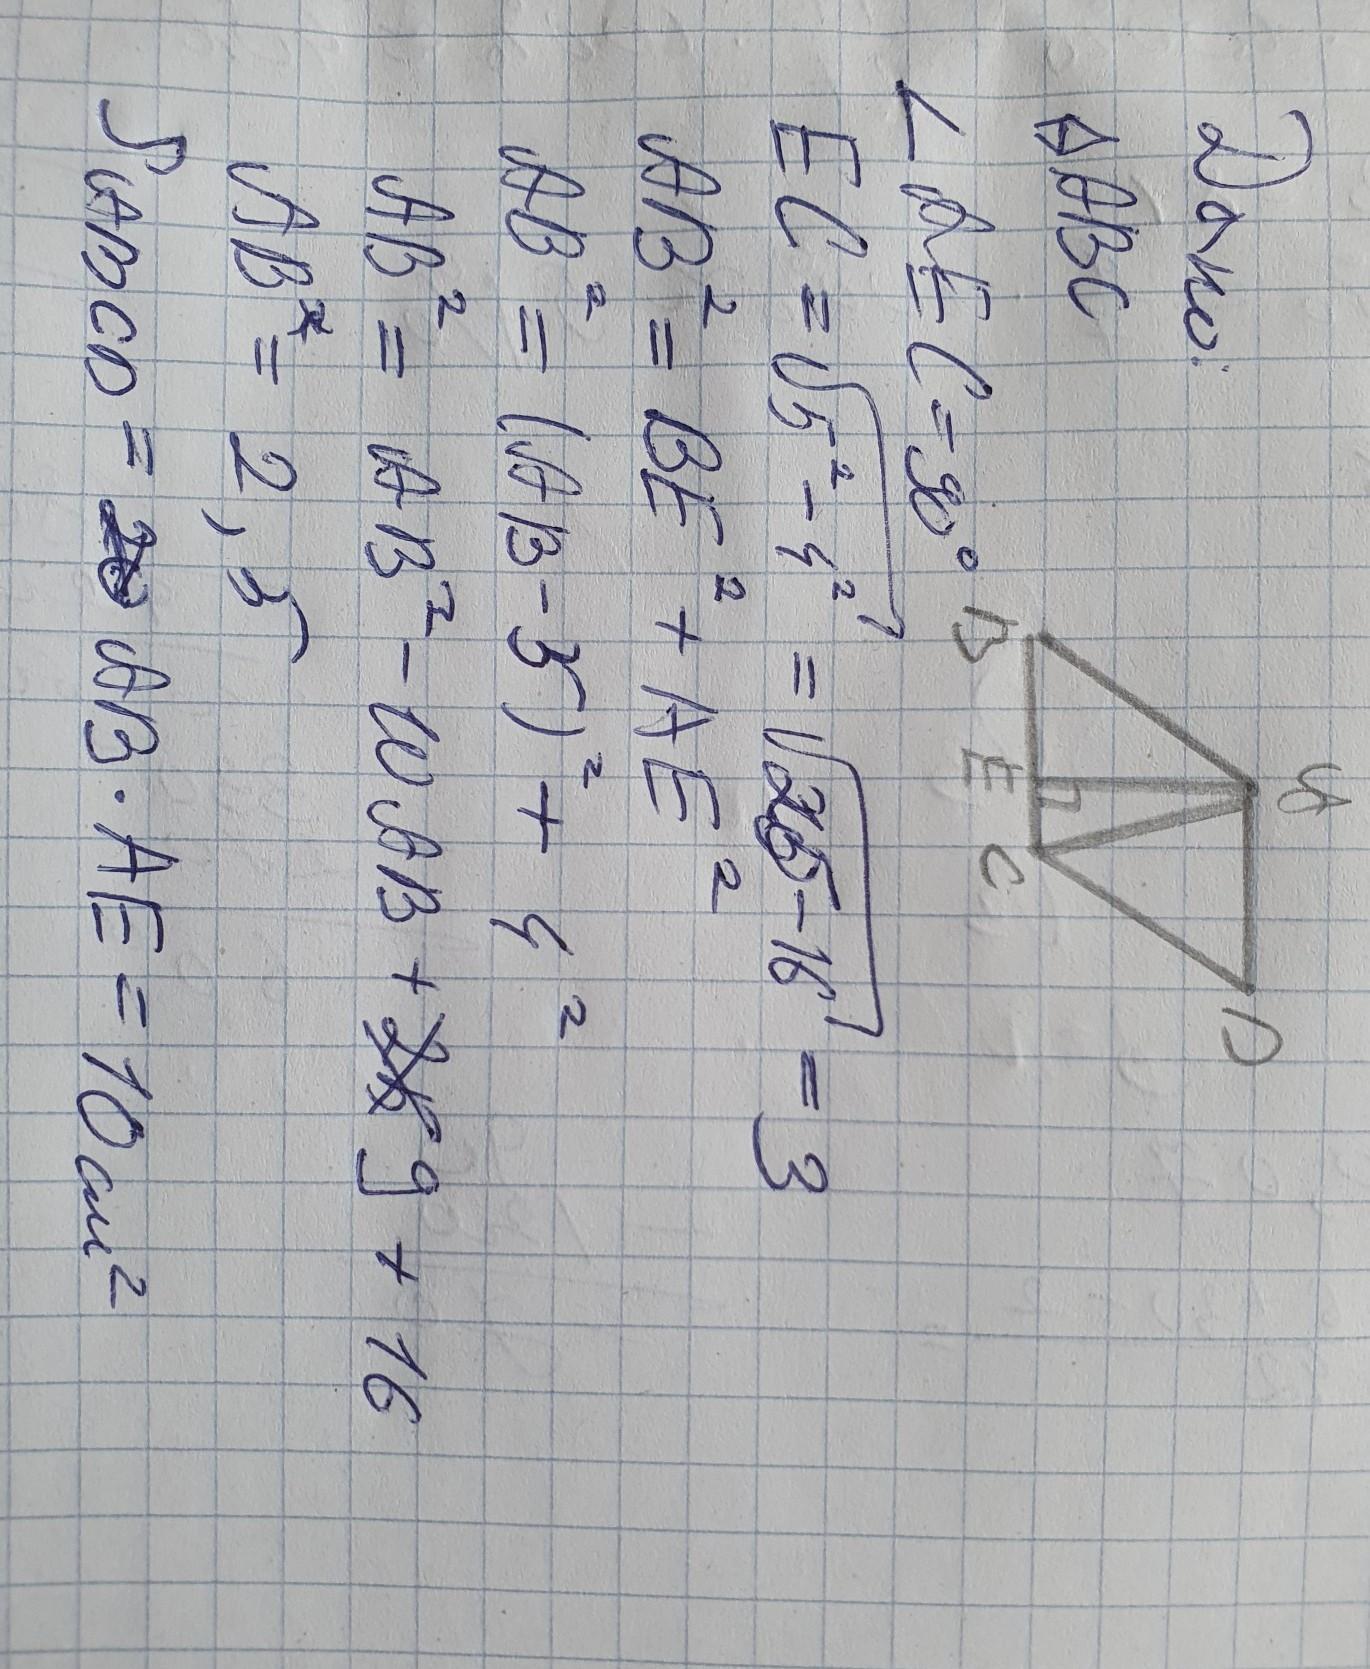 Дано:
△ABC
∠AEC=90°
EC=√5²-4² =√25-16 =3
AB²=BE²+AE²
AB²=(AB-5)²+4²
AB²=AB²-10AB+9+16
AB=2,5
SABCD=AB·AE=10см²
A
D
B
E
C